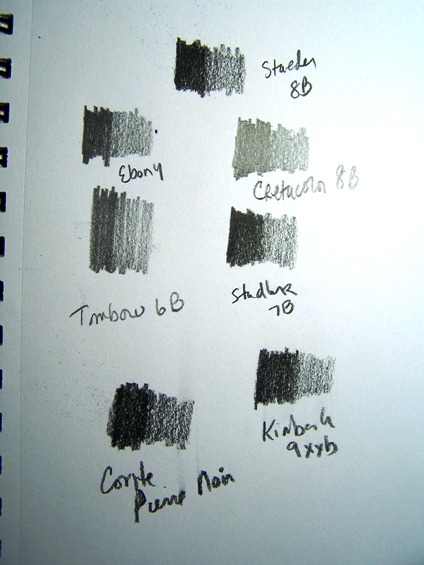 Staeder
8B
Ebony
Cretacolor 8B
Tombow 6B
7B
Kimberly
9xxb
Conte
Pierre Noir